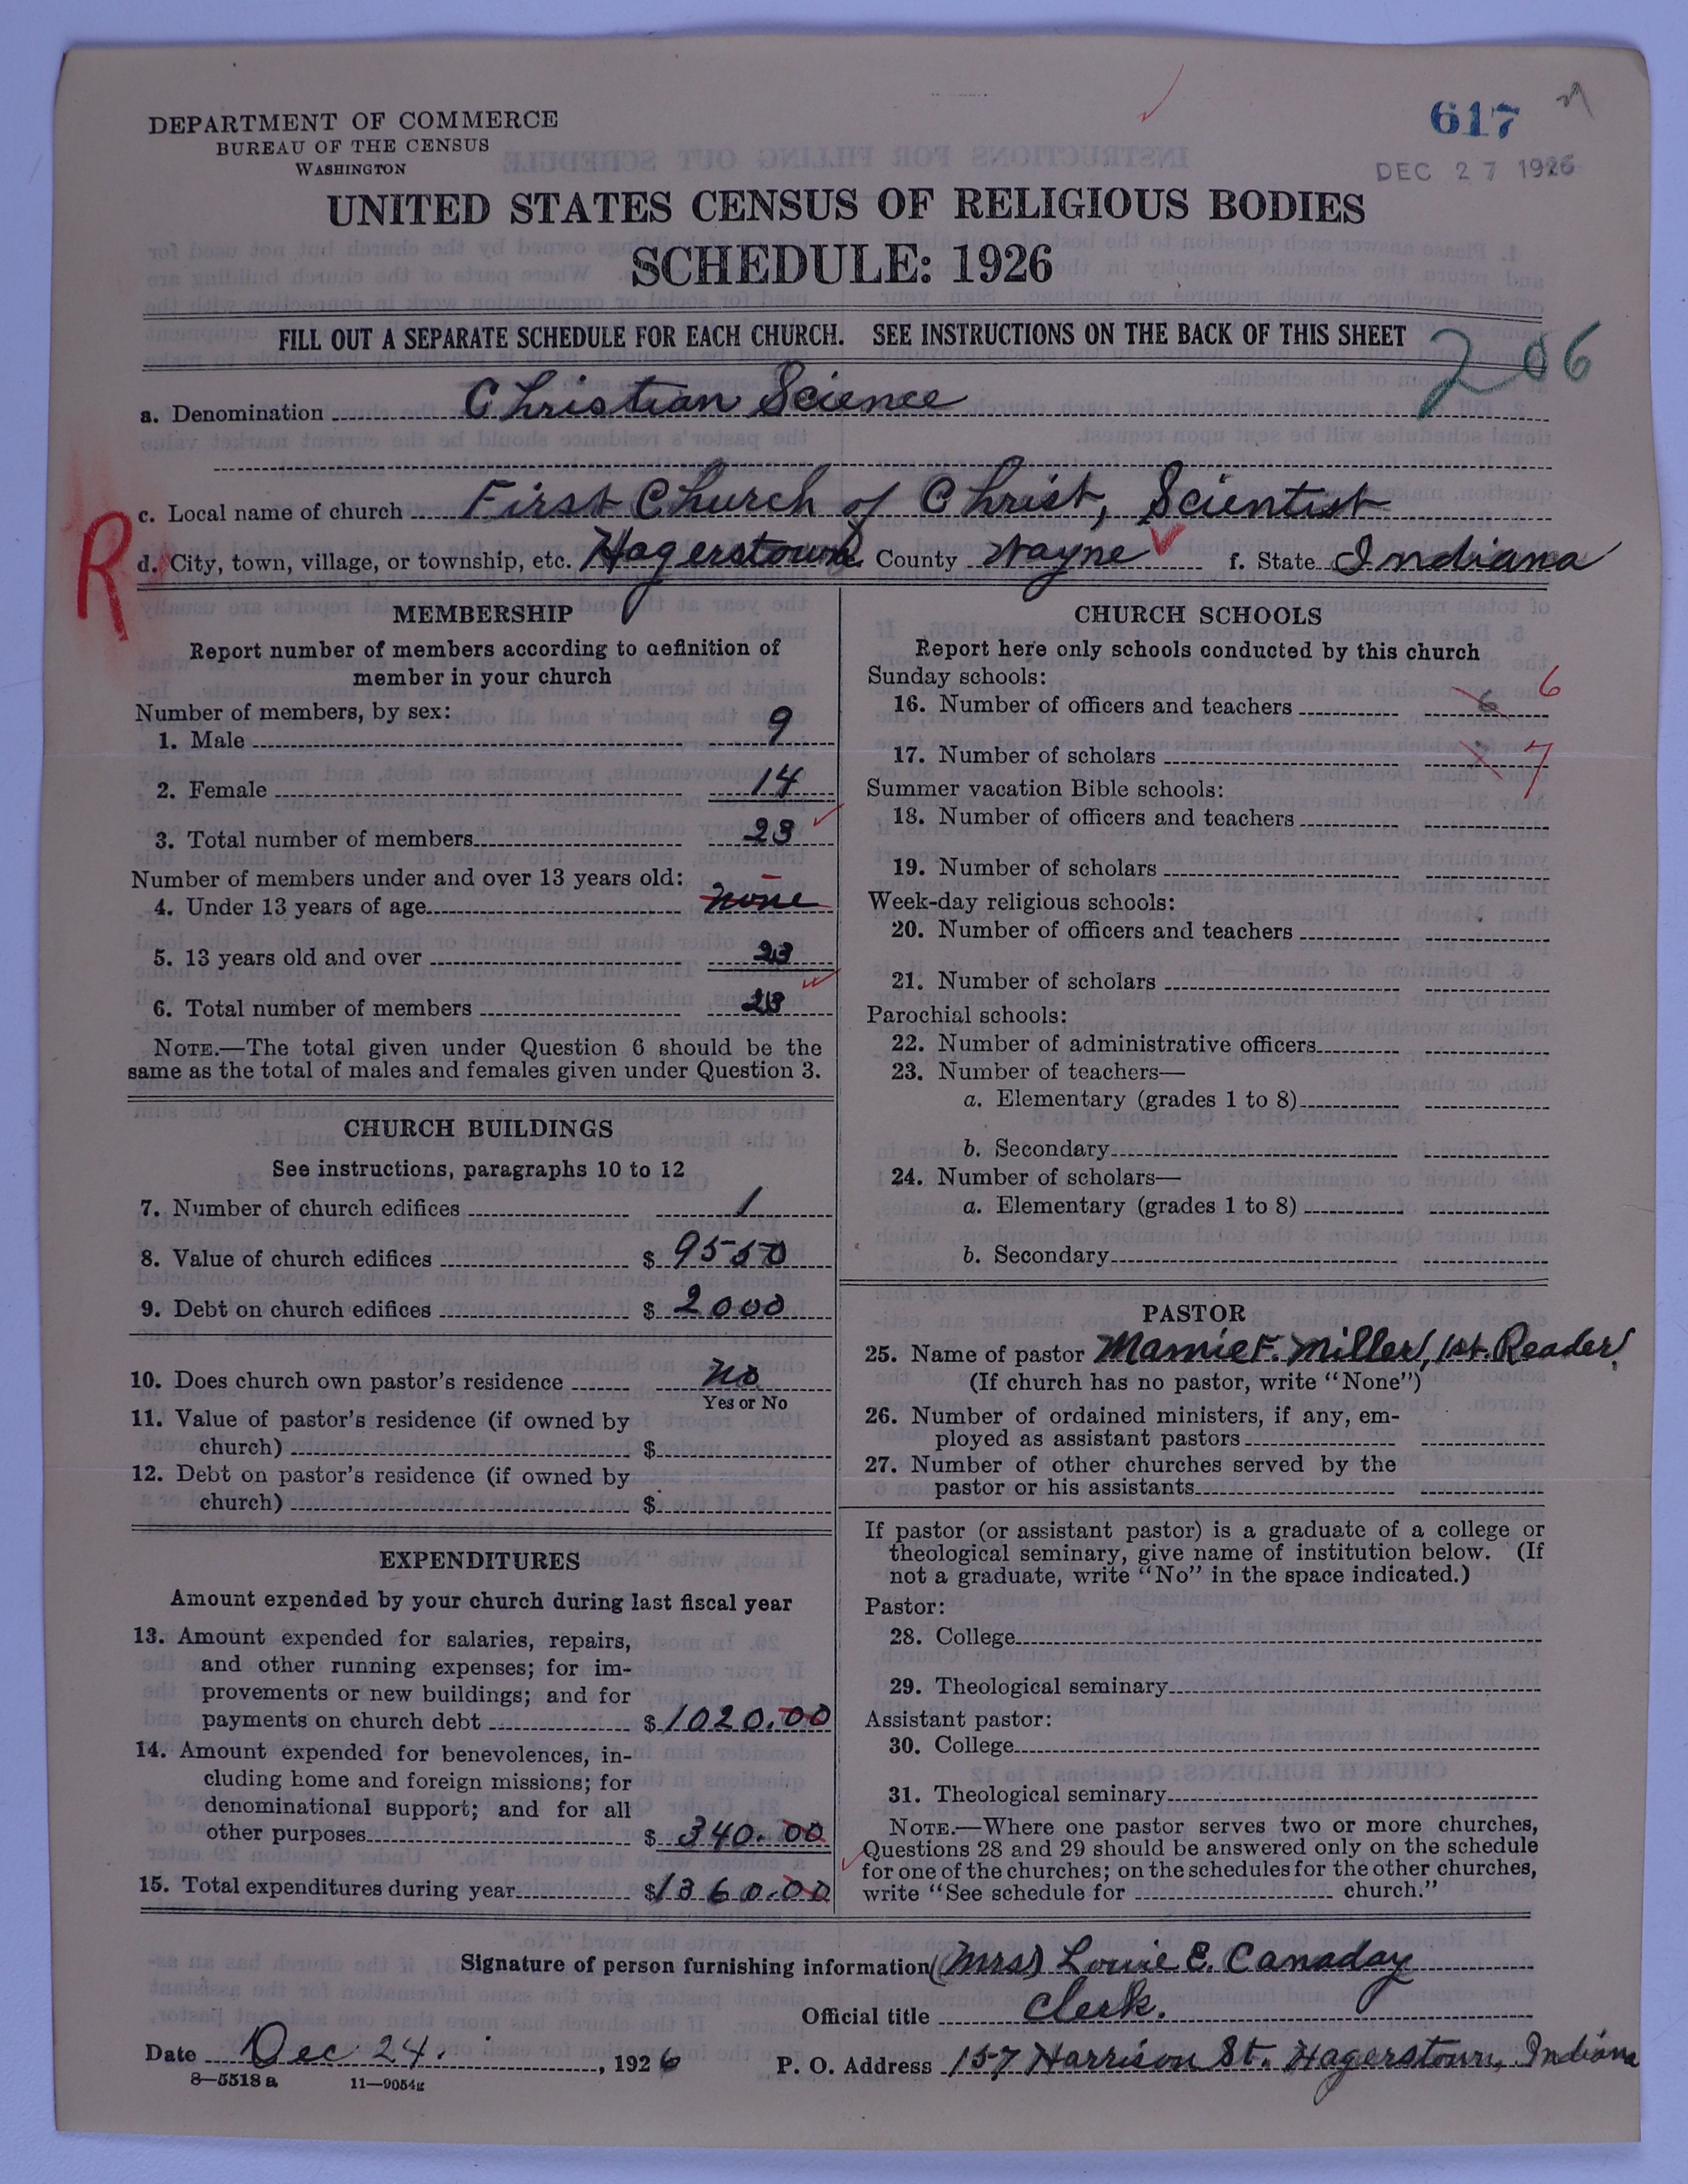 DEPARTMENT OF COMMERCE
BUREAU OF THE CENSUS
WASHINGTON
617
DEC 27 1926
UNITED STATES CENSUS OF RELIGIOUS BODIES
SCHEDULE: 1926
FILL OUT A SEPARATE SCHEDULE FOR EACH CHURCH. SEE INSTRUCTIONS ON THE BACK OF THIS SHEET
206
a. Denomination Christian Science
c. Local name of church First Church of Christ, Scientist
R
d. City, town, village, or township, etc. Hagerstown County Wayne f. State Indiana
MEMBERSHIP
Report number of members according to definition of
member in your church
Number of members, by sex:
1. Male 9
2. Female 14
3. Total number of members 23
Number of members under and over 13 years old:
4. Under 13 years of age none
5. 13 years old and over 23
6. Total number of members 23
NOTE.—The total given under Question 6 should be the
same as the total of males and females given under Question 3.
CHURCH BUILDINGS
See instructions, paragraphs 10 to 12
7. Number of church edifices 1
8. Value of church edifices $ 9550
9. Debt on church edifices $ 2000
10. Does church own pastor's residence No
Yes or No
11. Value of pastor's residence (if owned by
church) $
12. Debt on pastor's residence (if owned by
church) $
EXPENDITURES
Amount expended by your church during last fiscal year
13. Amount expended for salaries, repairs,
and other running expenses; for im-
provements or new buildings; and for
payments on church debt $ 1020.00
14. Amount expended for benevolences, in-
cluding home and foreign missions; for
denominational support; and for all
other purposes $ 340.00
15. Total expenditures during year $ 1360.00
CHURCH SCHOOLS
Report here only schools conducted by this church
Sunday schools:
16. Number of officers and teachers 6 6
17. Number of scholars 7
Summer vacation Bible schools:
18. Number of officers and teachers
19. Number of scholars
Week-day religious schools:
20. Number of officers and teachers
21. Number of scholars
Parochial schools:
22. Number of administrative officers
23. Number of teachers—
a. Elementary (grades 1 to 8)
b. Secondary
24. Number of scholars—
a. Elementary (grades 1 to 8)
b. Secondary
PASTOR
25. Name of pastor Mamie F. Miller, 1st. Reader
(If church has no pastor, write "None")
26. Number of ordained ministers, if any, em-
ployed as assistant pastors
27. Number of other churches served by the
pastor or his assistants
If pastor (or assistant pastor) is a graduate of a college or
theological seminary, give name of institution below. (If
not a graduate, write "No" in the space indicated.)
Pastor:
28. College
29. Theological seminary
Assistant pastor:
30. College
31. Theological seminary
NOTE.—Where one pastor serves two or more churches,
Questions 28 and 29 should be answered only on the schedule
for one of the churches; on the schedules for the other churches,
write "See schedule for church."
Signature of person furnishing information (Mrs) Louie E. Canaday
Official title Clerk.
Date Dec 24. , 1926
P. O. Address 157 Harrison St. Hagerstown, Indiana
8—5518 a 11—9054g